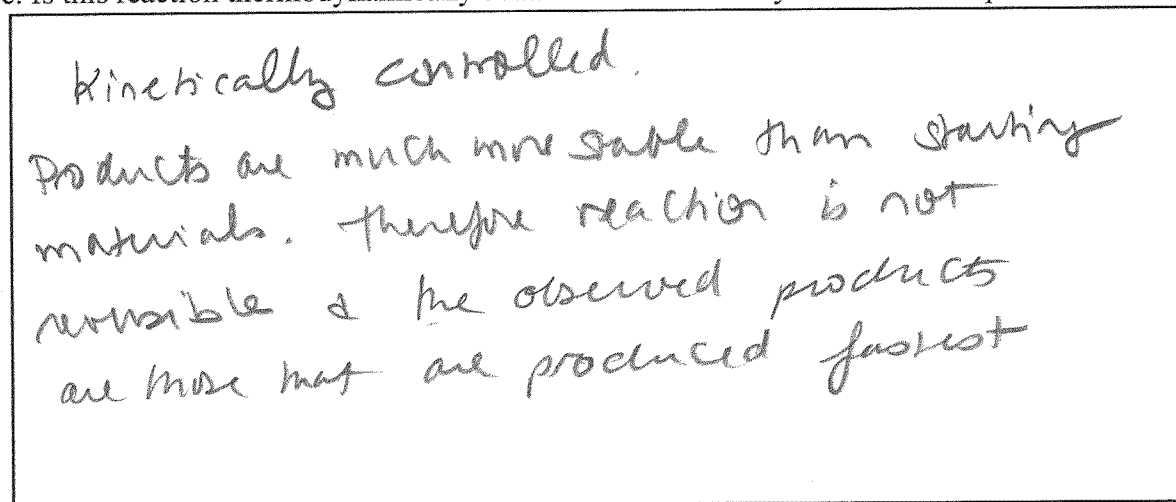 Kinetically controlled.
Products are much more stable than starting
materials. Therefore reaction is not
reversible & the observed products
are those that are produced fastest